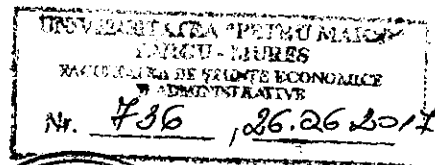 UNIVERSITATEA "PETRU MAIOR"
TÂRGU - MUREȘ
FACULTATEA DE ȘTIINȚE ECONOMICE
ȘI ADMINISTRATIVE
Nr. 736 , 26.06.2017